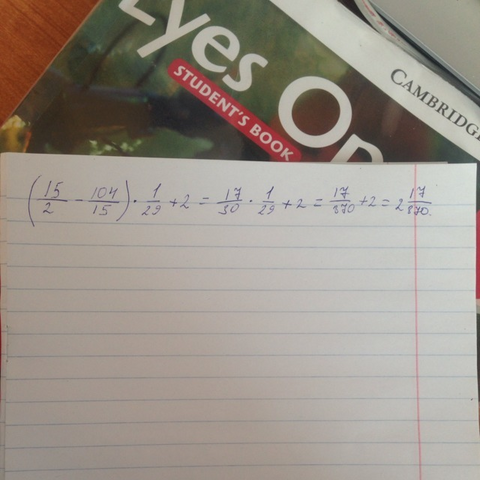 Eyes Op
STUDENT'S BOOK
CAMBRIDGE
(15/2 - 104/15) · 1/29 + 2 = 17/30 · 1/29 + 2 = 17/870 + 2 = 2 17/870.